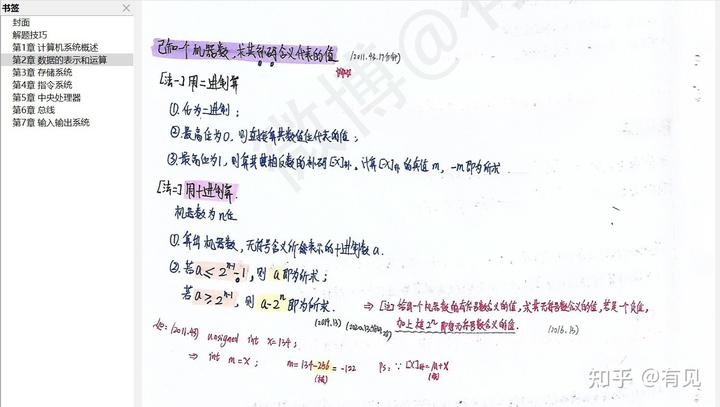 书签
封面
解题技巧
第1章 计算机系统概述
第2章 数据的表示和运算
第3章 存储系统
第4章 指令系统
第5章 中央处理器
第6章 总线
第7章 输入输出系统
已知一个机器数,求其补码含义代表的值 (2011.43.17分钟)
[法一] 用二进制算
①.化为二进制;
②.最高位为0,则直接算其数值位代表的值;
③.最高位为1,则算其 相反数的补码[X]补。计算[X]补的真值m,-m即为所求.
[法二] 用十进制算.
机器数为n位
①.算出机器数,无符号含义所 表示的十进制数a.
②.若a≤2ⁿ⁻¹-1,则a即为所求;
若a≥2ⁿ⁻¹,则a-2ⁿ即为所求.
⇒ [注]给定一个机器数的有符号数含义的值,求其无符号数含义的值,若是一个负值,
加上模2ⁿ即为无符号数含义的值. (2016.13)
(2019.13)
例:(2011.43) unsigned int x=134;
⇒ int m=x; m=134-256=-122 Ps:∵[X]补=M+X
(模) (模)
微博@有
知乎 @有见